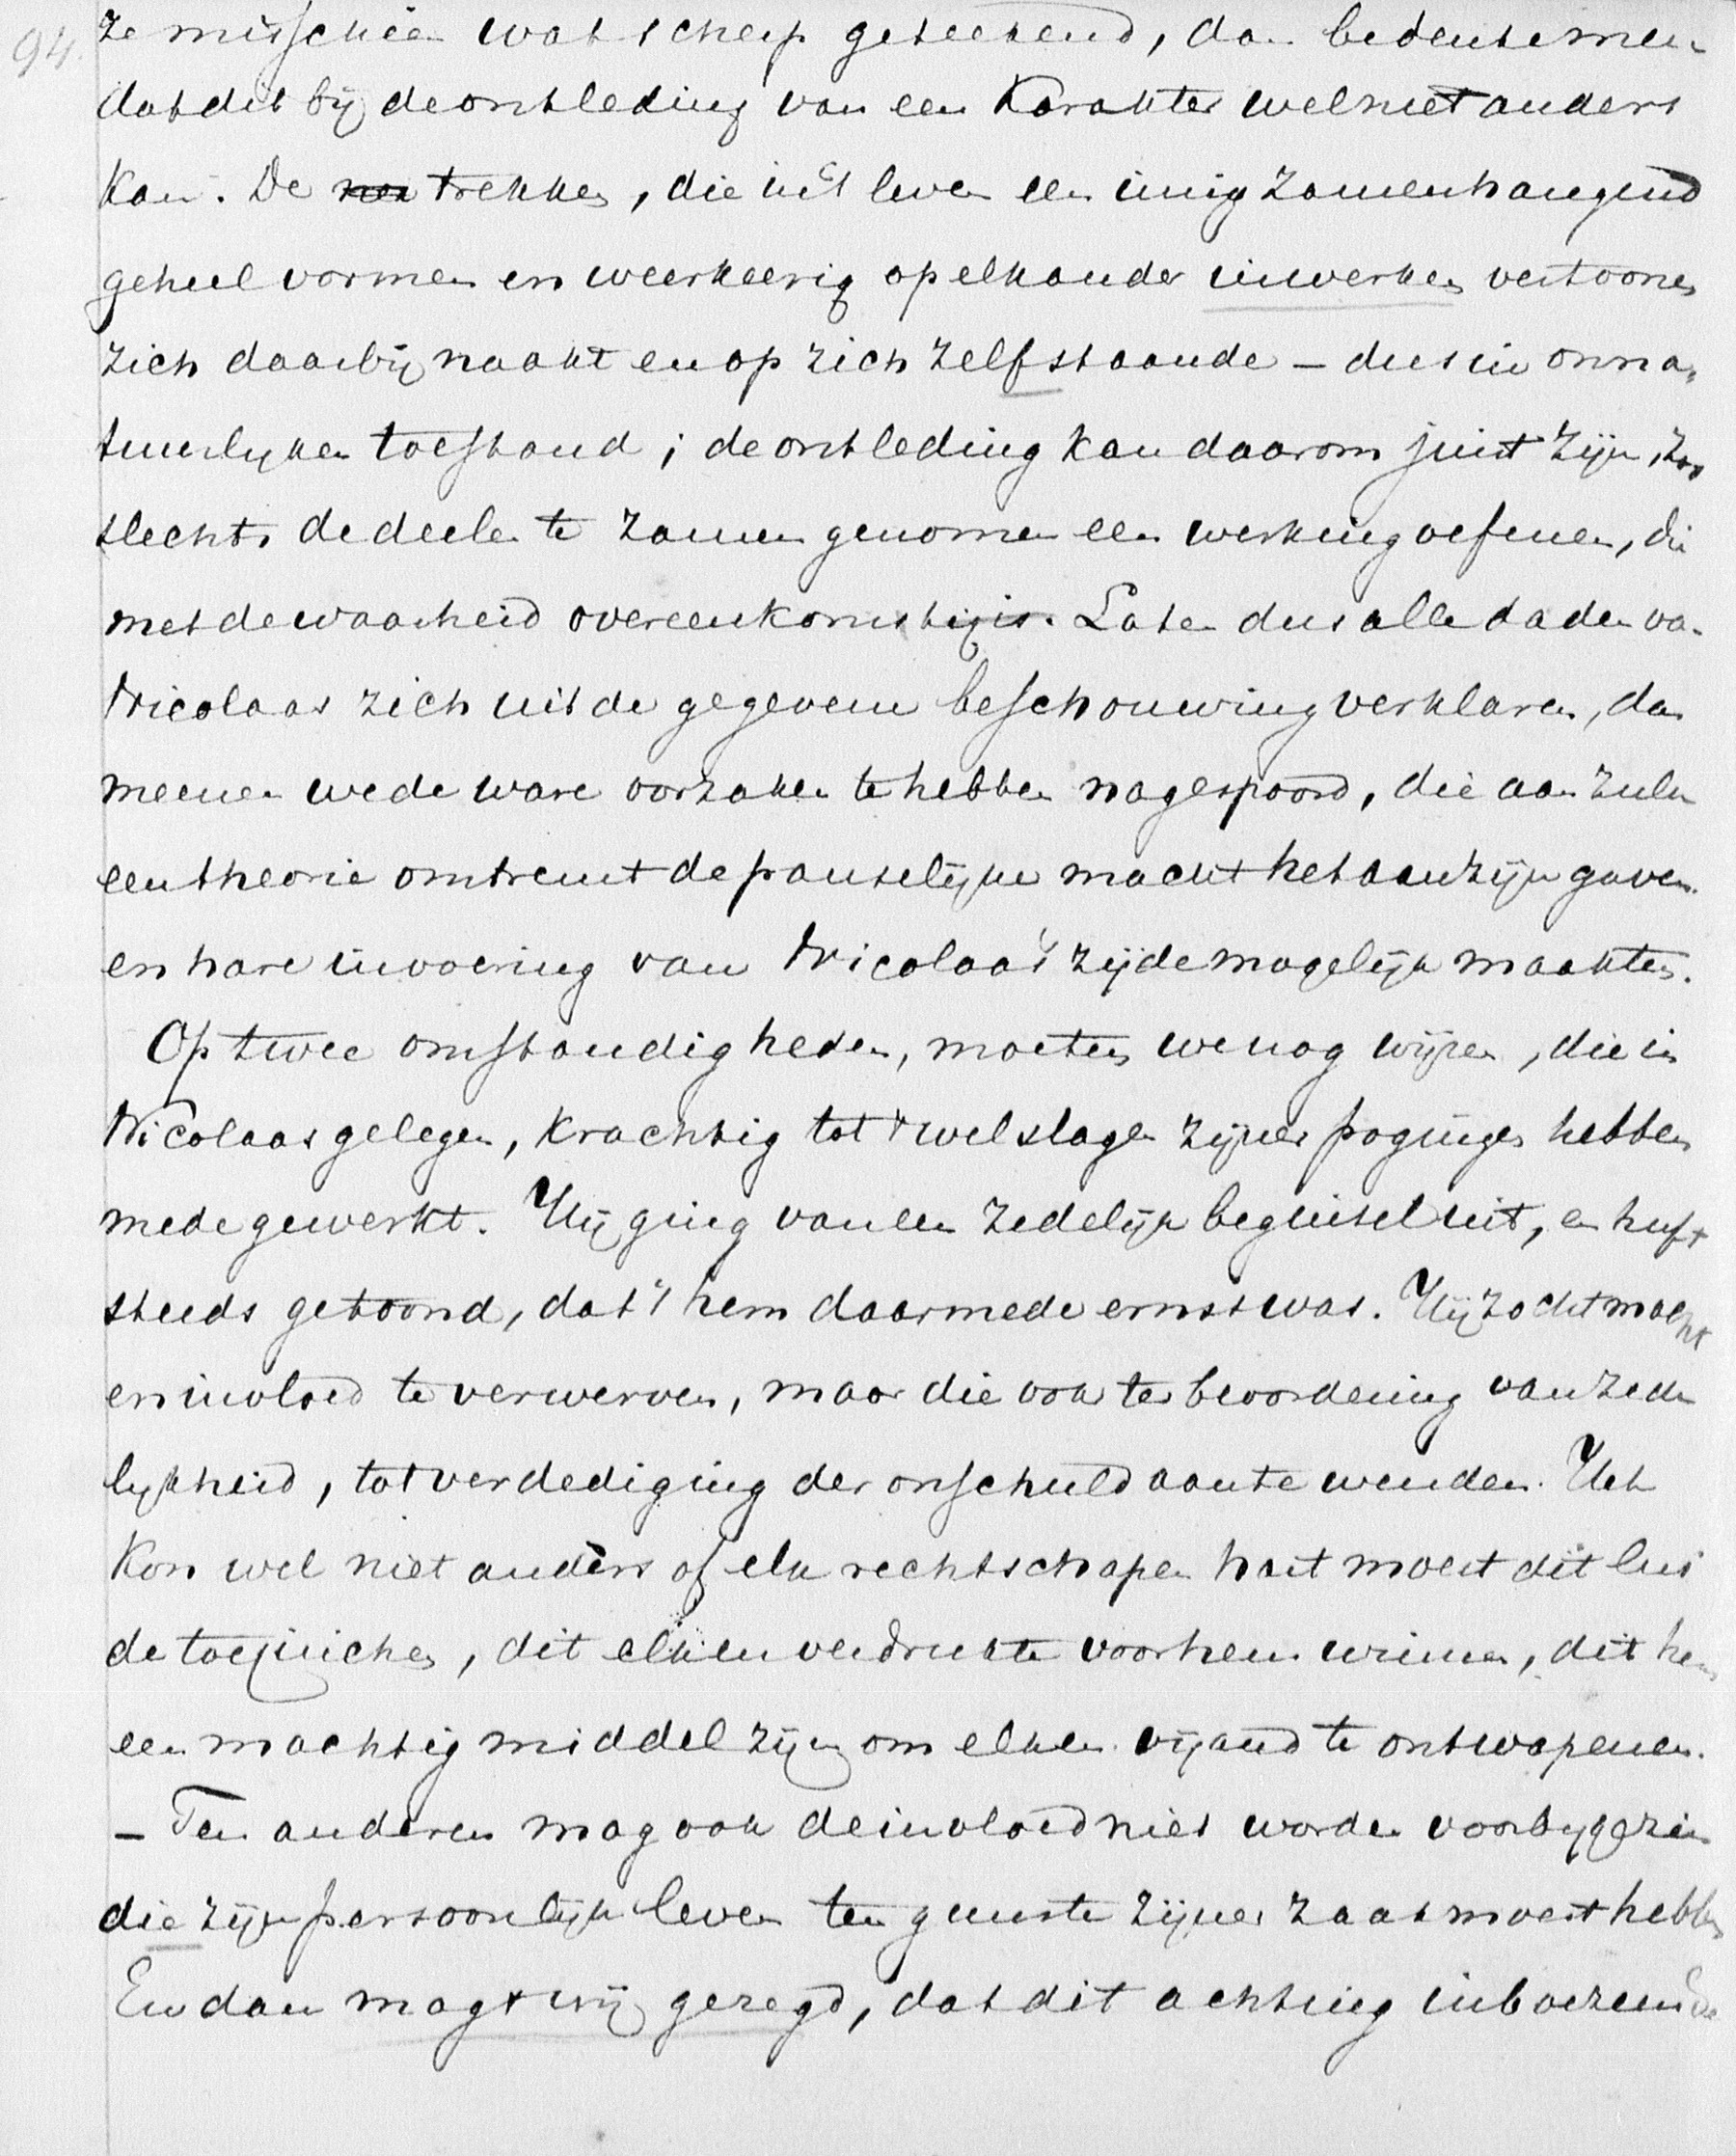 94.
ze misschien wat scherp geteekend, dan bedenke men
dat dit bij de ontleding van een karakter wel niet anders
kan. De trekken, die in 't leven een innig zamenhangend
geheel vormen en weerkeerig op elkander inwerken vertoonen
zich daarbij naakt en op zich zelf staande – dus in onna„
tuurlyken toestand; de ontleding kan daarom juist zijn, zoo
slechts de deelen te zamen genomen een werking oefenen, die
met de waarheid overeenkomstig is. Laten dus alle daden van
Nicolaas zich uit de gegevene beschouwing verklaren, dan
meenen we de ware oorzaken te hebben nagespoord, die aan zulk
een theorie omtrent de pauselijke macht het aanzijn gaven
en hare invoering van Nicolaas zijde mogelijk maakten.
Op twee omstandigheden, moeten we nog wijzen, die in
Nicolaas gelegen, krachtig tot 't welslagen zijner pogingen hebben
medegewerkt. Hij ging van een zedelijk beginsel uit, en heeft
steeds getoond, dat 't hem daarmede ernst was. Hij zocht macht
en invloed te verwerven, maar die ook ter bevordering van zede
lykheid, tot verdediging der onschuld aan te wenden. Het
kon wel niet anders of elk rechtschapen hart moest dit lui
de toejuichen, dit elken verdrukte voor hem winnen, dit hem
een machtig middel zijn om elken vijand te ontwapenen.
– Ten anderen mag ook de invloed niet worden voorbygezien
die zijn persoonlijk leven ten gunste zijner zaak moest hebben
En dan mag 't vrij gezegd, dat dit achting inboezemde